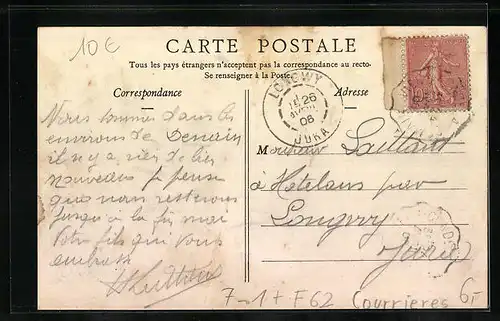 10 €
CARTE POSTALE
Tous les pays étrangers n'acceptent pas la correspondance au recto.
Se renseigner à la Poste.
Correspondance
Adresse
LONGWY
26
06
JURA
Nous sommes dans les
environs de Denain
il n'y a rien de bien
nouveau je pense
que nous resterons
jusqu'à la fin mai
Votre fils qui vous
embrasse
Monsieur
à Hotelans par
Longwy
Jura
7-1 + F62 Courrieres 6,-